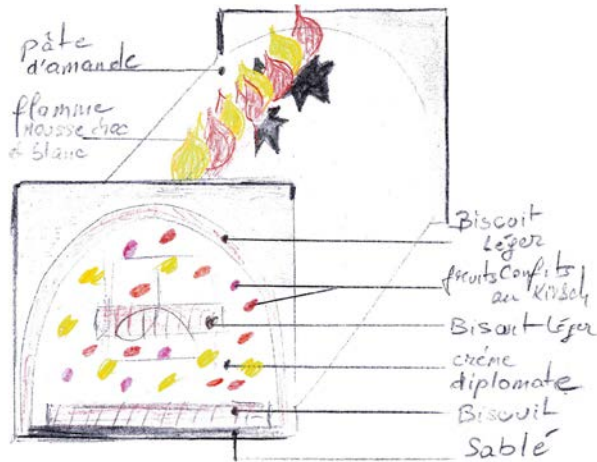 pâte
d'amande
flamme
mousse choc
et blanc
Biscuit
léger
fruits confits
au Kirsch
Biscuit léger
crème
diplomate
Biscuit
Sablé